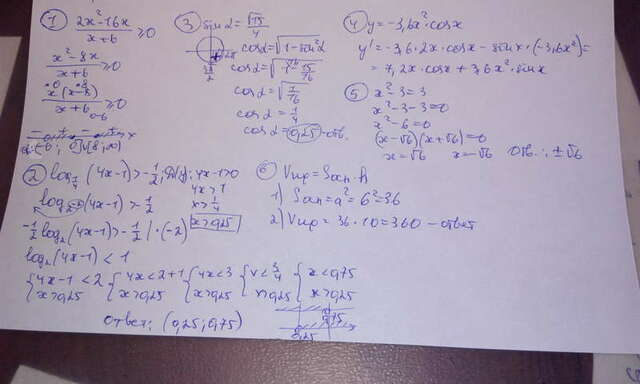 1) (2x²-16x)/(x+6) ≥ 0
(x²-8x)/(x+6) ≥ 0
(x(x-8))/(x+6) ≥ 0
2) log 1/4 (4x-1) > -1/2; 4x-1>0
4x>1
x>1/4
x>0,25
(4x-1) > -1/2
-1/2 log₂(4x-1) > -1/2 | ·(-2)
log₂(4x-1) < 1
{4x-1<2 {4x<2+1 {4x<3 {x<3/4 {x<0,75
x>0,25 x>0,25 x>0,25 x>0,25 x>0,25
Ответ: (0,25; 0,75)
0,75
0,25
3) sin α = √15/4
cos α = √(1-sin²α)
cos α = √(1-15/16)
cos α = √(1/16)
cos α = 1/4
cos α = 0,25 -отв.
4) y = -3,6x²·cosx
y' = -3,6·2x·cosx - sinx·(-3,6x²) =
= -7,2x·cosx + 3,6x²·sinx
5) x²-3=3
x²-3-3=0
x²-6=0
(x-√6)(x+√6)=0
x=√6 x=-√6 Отв.: ±√6
6) Vпр = Sосн·h
1) Sосн = a² = 6² = 36
2) Vпр = 36·10 = 360 - ответ